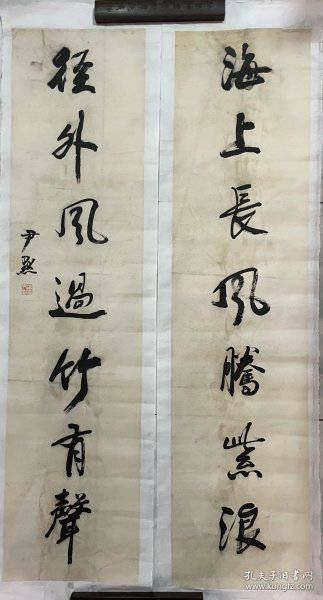 海上長風騰紫浪
徑外風過竹有聲
尹默
孔夫子旧书网
www.kongfz.com